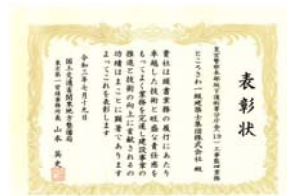 表彰状
とこうさわ一級建築士集団株式会社 殿
貴社は頭書業務の履行にあたり
卓越した技術と旺盛な責任感を
もってよく業務を完遂し建設事業の
推進と技術の向上に貢献されその
功績はまことに顕著であります
よってこれを表彰します
令和三年七月十九日
国土交通省関東地方整備局
東京第一営繕事務所長 山本 英史